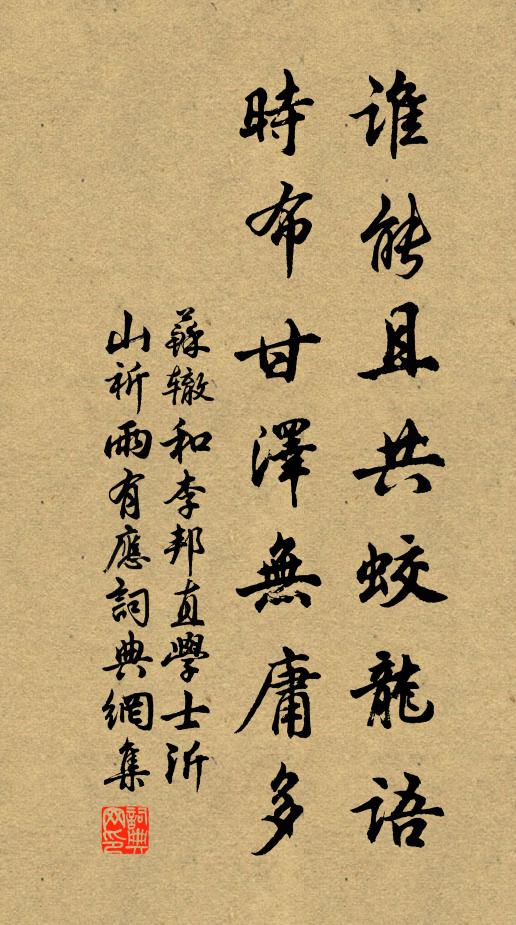 谁能且共蛟龍语
時布甘澤無庸多
蘇辙和李邦直學士沂
山祈雨有應詞典網集
詞典网印